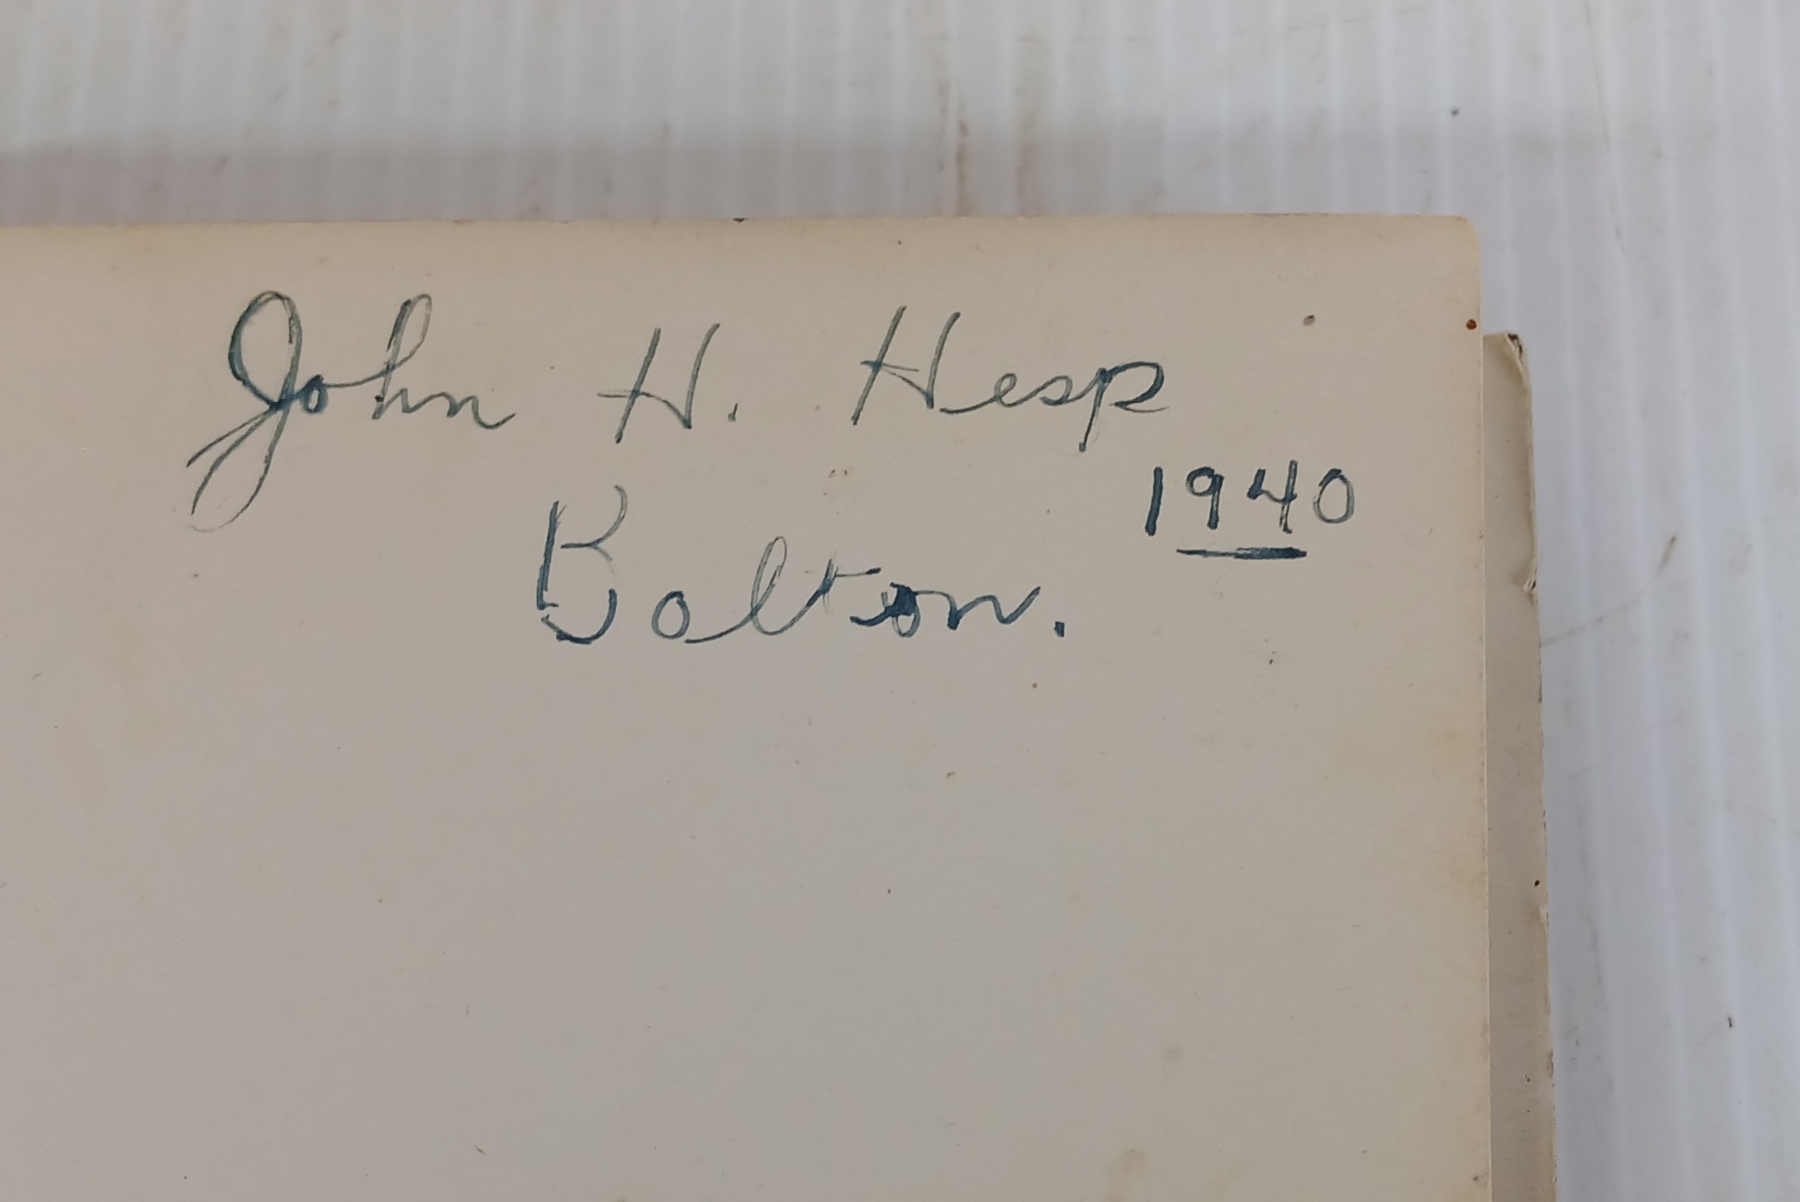 John H. Hesp
1940
Bolton.